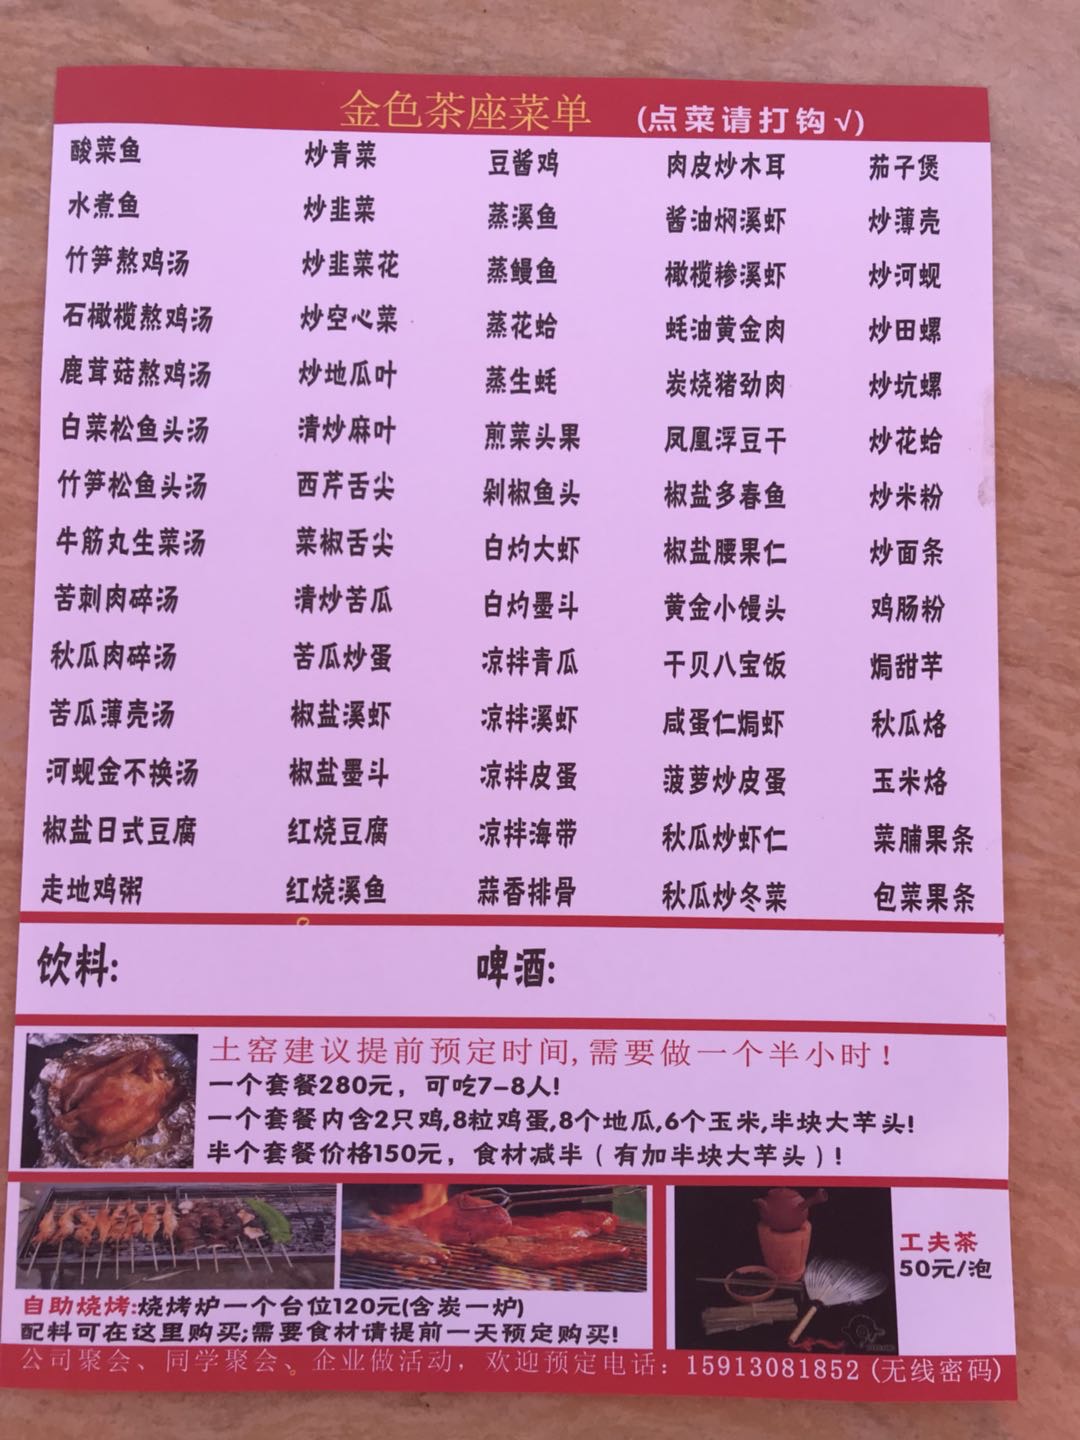 金色茶座菜单 (点菜请打钩√)
酸菜鱼 炒青菜 豆酱鸡 肉皮炒木耳 茄子煲
水煮鱼 炒韭菜 蒸溪鱼 酱油焖溪虾 炒薄壳
竹笋熬鸡汤 炒韭菜花 蒸鳗鱼 橄榄糁溪虾 炒河蚬
石橄榄熬鸡汤 炒空心菜 蒸花蛤 蚝油黄金肉 炒田螺
鹿茸菇熬鸡汤 炒地瓜叶 蒸生蚝 炭烧猪劲肉 炒坑螺
白菜松鱼头汤 清炒麻叶 煎菜头果 凤凰浮豆干 炒花蛤
竹笋松鱼头汤 西芹舌尖 剁椒鱼头 椒盐多春鱼 炒米粉
牛筋丸生菜汤 菜椒舌尖 白灼大虾 椒盐腰果仁 炒面条
苦刺肉碎汤 清炒苦瓜 白灼墨斗 黄金小馒头 鸡肠粉
秋瓜肉碎汤 苦瓜炒蛋 凉拌青瓜 干贝八宝饭 焗甜芋
苦瓜薄壳汤 椒盐溪虾 凉拌溪虾 咸蛋仁焗虾 秋瓜烙
河蚬金不换汤 椒盐墨斗 凉拌皮蛋 菠萝炒皮蛋 玉米烙
椒盐日式豆腐 红烧豆腐 凉拌海带 秋瓜炒虾仁 菜脯果条
走地鸡粥 红烧溪鱼 蒜香排骨 秋瓜炒冬菜 包菜果条
饮料: 啤酒:
土窑建议提前预定时间,需要做一个半小时！
一个套餐280元，可吃7-8人!
一个套餐内含2只鸡,8粒鸡蛋,8个地瓜,6个玉米,半块大芋头!
半个套餐价格150元，食材减半（有加半块大芋头）!
工夫茶
50元/泡
自助烧烤:烧烤炉一个台位120元(含炭一炉)
配料可在这里购买;需要食材请提前一天预定购买!
公司聚会、同学聚会、企业做活动，欢迎预定电话：15913081852 (无线密码)